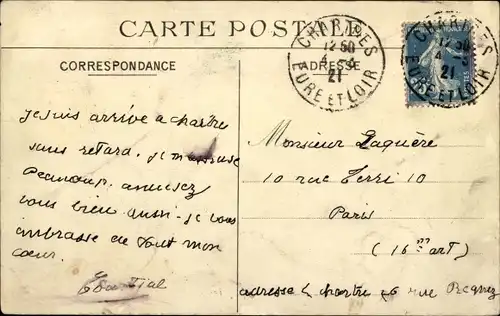 CARTE POSTALE
CORRESPONDANCE
ADRESSE
CHARTRES
12 50
4 -4
21
EURE ET LOIR
CHARTRES
12 50
4 -3
21
EURE ET LOIR
je suis arrive a chartre
sans retard. je m'amuse
beaucoup. amusez
vous bien aussi. je vous
ambrasse de tout mon
cœur.
Monsieur Laguère
10 rue 10
Paris
(16 m art)
adresse a chartre 26 rue